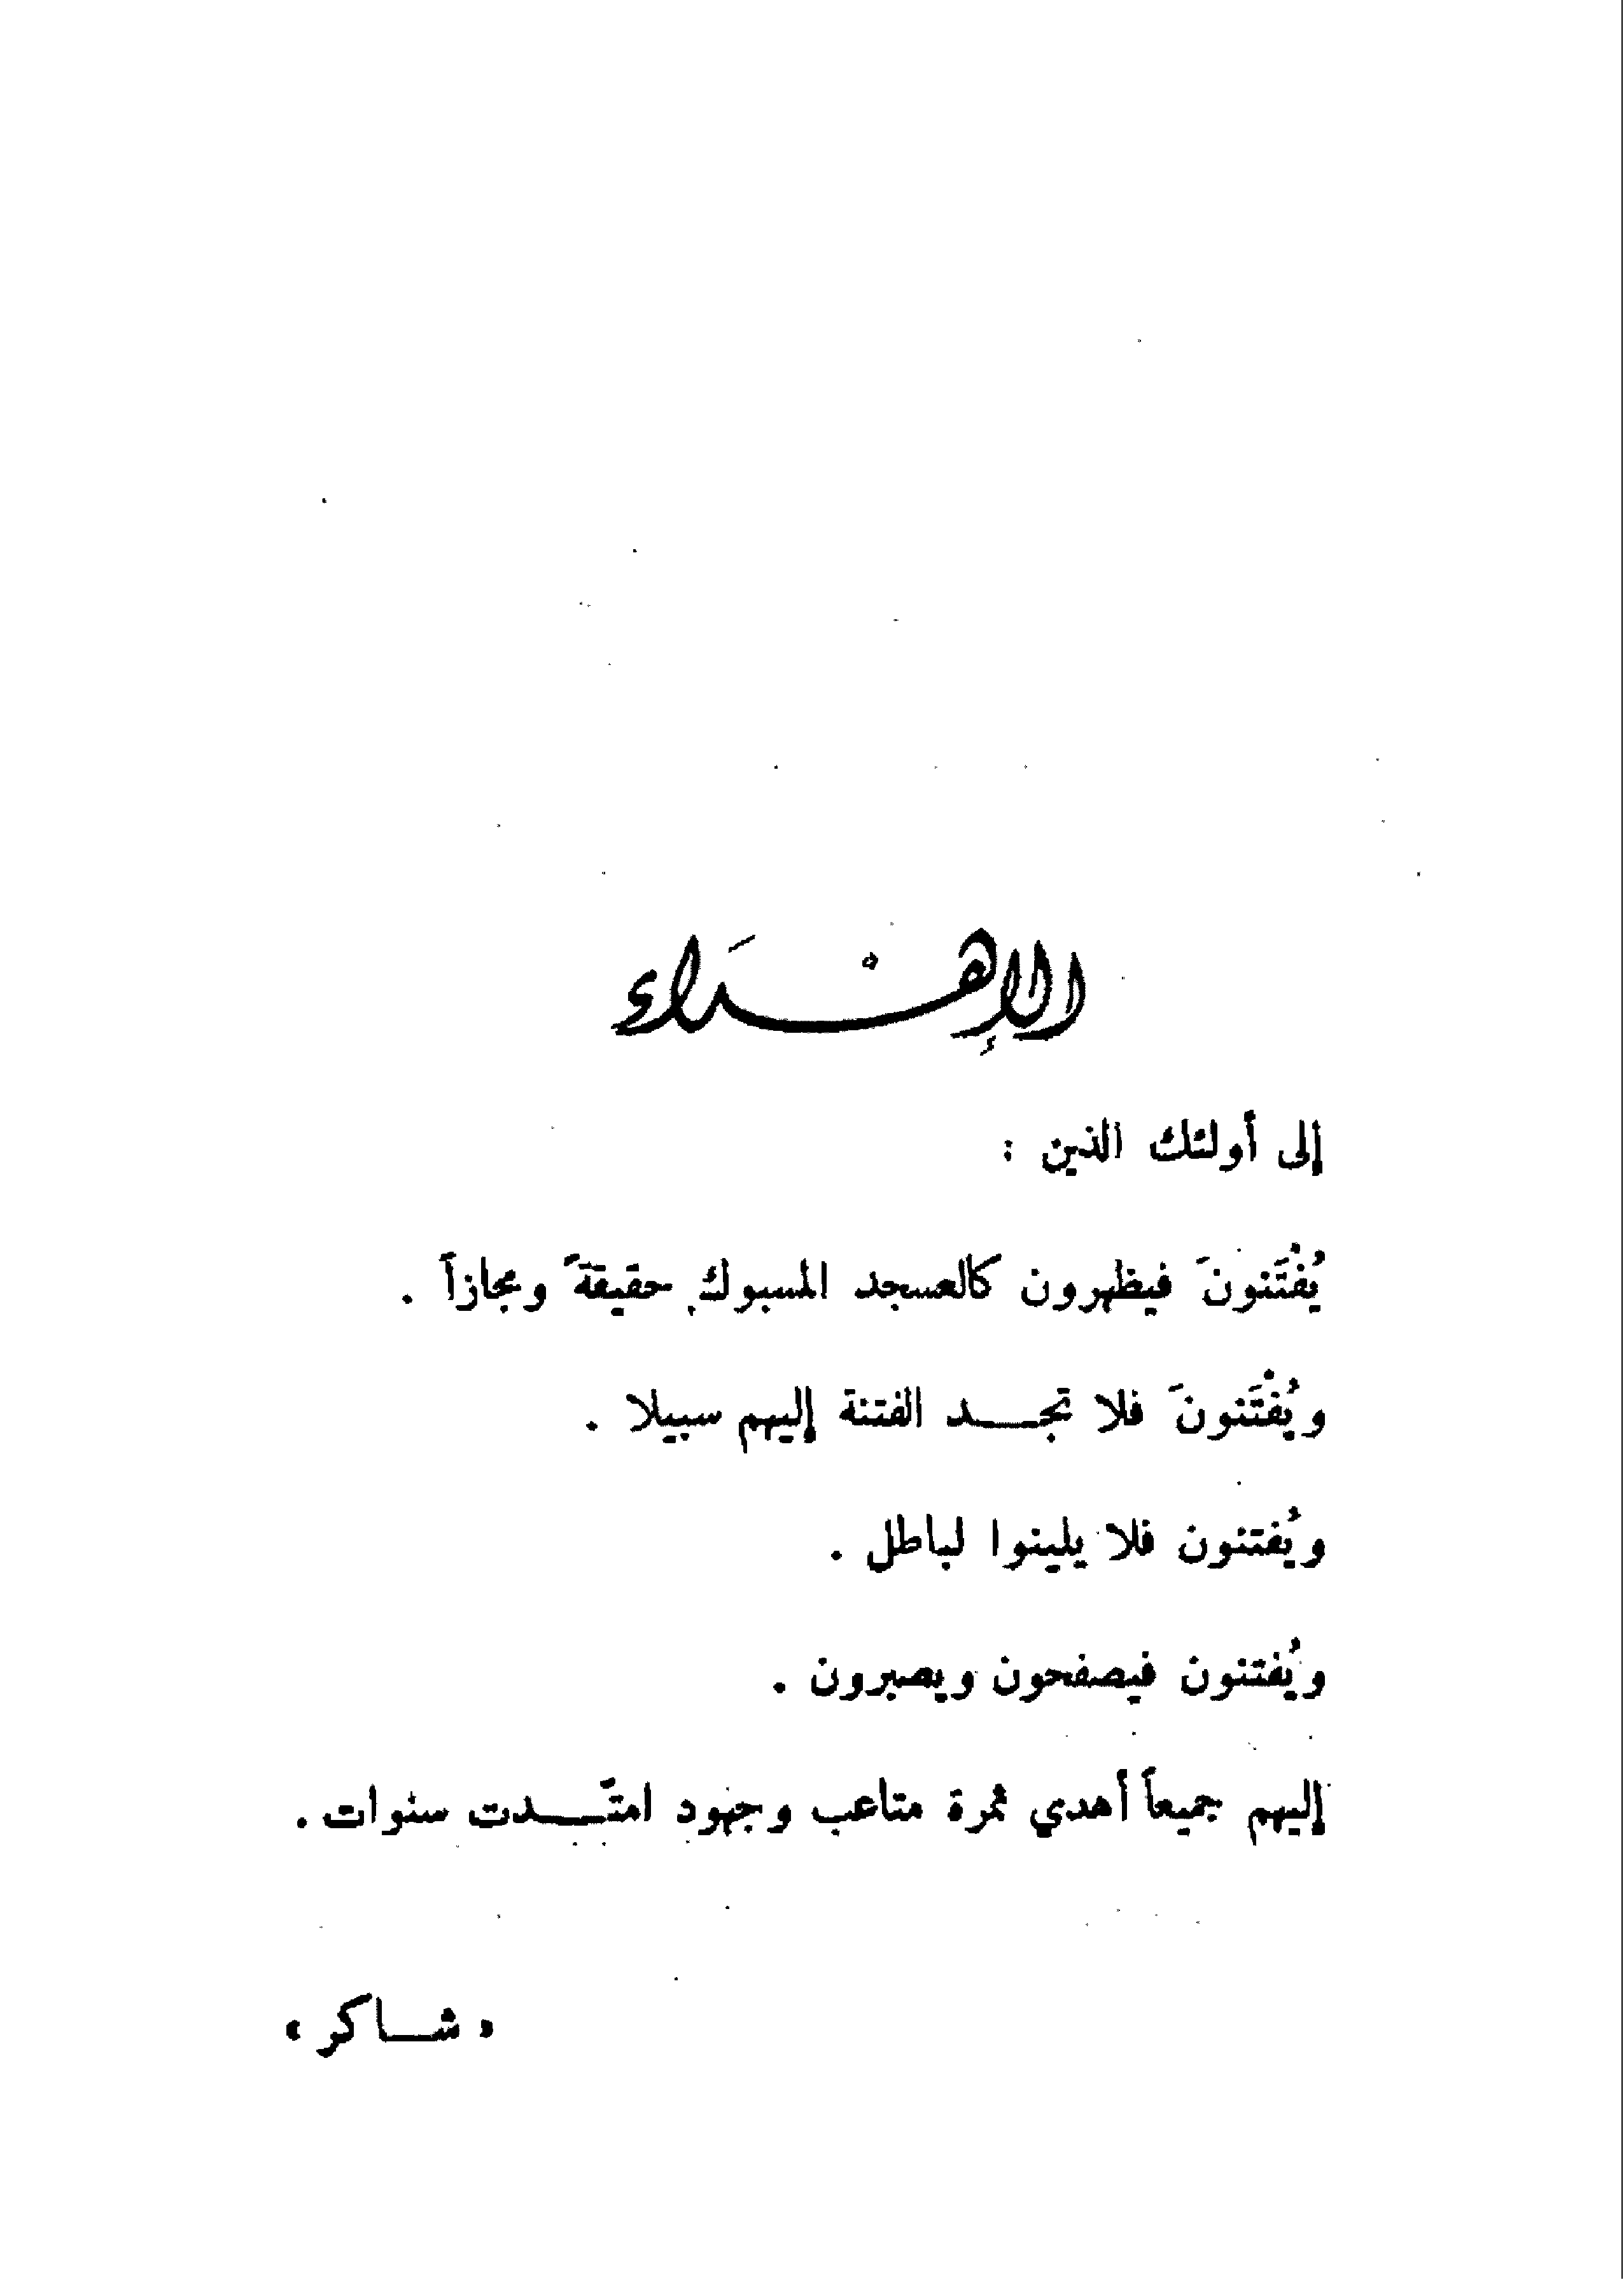 الإهْدَاء
إلى أولئك الذين :
يُفْتَنونَ فيظهرون كالعسجد المسبوكِ حقيقةً ومجازاً .
ويُفْتَنونَ فلا تجـــد الفتنة إليهم سبيلا .
ويُفتنون فلا يلينوا لباطل .
ويُفتنون فيصفحون ويصبرون .
إليهم جميعاً أهدي ثمرة متاعب وجهود امتّـــدت سنوات .
« شـــاكر »